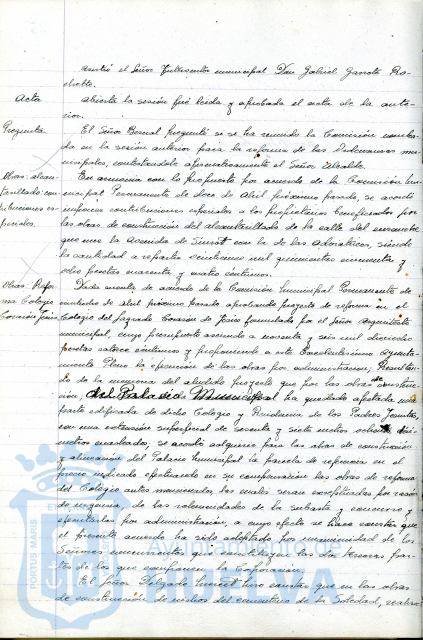 asistió el Señor Interventor municipal Don Gabriel Garrote Re-
Acta
Abierta la sesión fué leida y aprobada el acta de la ante-
rior.
Pregunta
El Señor Bernal preguntó si se ha reunido la Comisión nombra-
da en la sesión anterior para la reforma de las Ordenanzas mu-
nicipales, contestándole afirmativamente el Señor Alcalde.
Obras alcan-
tarillado con-
tribuciones es-
peciales.
En armonia con lo propuesto por acuerdo de la Comisión Mu-
nicipal Permanente de doce de Abril próximo pasado, se acordó
imponer contribuciones especiales a los propietarios beneficiados por
las obras de construcción del alcantarillado de la calle
que une la Avenida de con la de Adoratrices, siendo
la cantidad a repartir mil quinientas cincuenta y
ocho pesetas cuarenta y cuatro centimos.
Obras Refor-
ma Colegio
Corazón Jesús
Dada cuenta de acuerdo de la Comisión Municipal Permanente de
de abril próximo pasado aprobando proyecto de reforma en el
Colegio del Sagrado Corazón de Jesús formulado por el Señor Arquitecto
municipal, cuyo presupuesto asciende a noventa y seis mil
pesetas catorce centimos y proponiendo a este Excelentisimo Ayunta-
miento Pleno la ejecución de las obras por administración; Resultan-
do de la memoria del aludido proyecto que por las obras de construc-
ción, del Palacio Municipal ha quedado afectada una
parte edificada de dicho Colegio y Residencia de los Padres Jesuitas,
con una extensión superficial de sesenta y siete metros ocho deci-
metros cuadrados, se acordó adquirir para las obras de construcción
y alineación del Palacio Municipal la parcela de referencia en el
precio indicado efectuando en su compensación las obras de reforma
del Colegio antes mencionado, las cuales serán exceptuadas por razón
de urgencia, de las solemnidades de la subasta y concurso y
ejecutadas por administración, a cuyo efecto se hace constar que
el presente acuerdo ha sido adoptado por unanimidad de los
Señores asistentes que constituyen las dos terceras par-
tes de los que componen la Corporación.
El Señor Delgado hizo constar que en las obras
de construcción de nichos del cementerio de la Soledad,
PORTUS MARIS
HUELVA